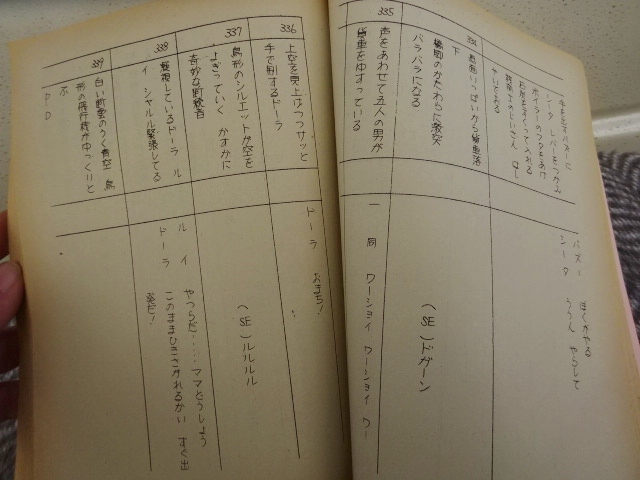 シータ レバーをつかみ
ボイラーのフタをあけ
パズー ぼくがやる
シータ ううん やらして
334
画面いっぱいから貨車落
下
橋脚のかたわらに激突
バラバラになる
(SE)ドガーン
335
声をあわせて五人の男が
貨車をゆすっている
一同 ワーショイ ワーショイ ワー
336
上空を見上げつつサッと
手で制するドーラ
ドーラ おまち!
337
鳥形のシルエットが空を
よぎっていく かすかに
奇妙な断続音
(SE)ルルルル
338
凝視しているドーラ ル
イ シャルル緊張してる
ルイ やつらだ……ママどうしよう
ドーラ このままひきさがれるかい すぐ出
発だ!
339
白い断雲のうく青空 鳥
形の飛行機がゆっくりと
PD